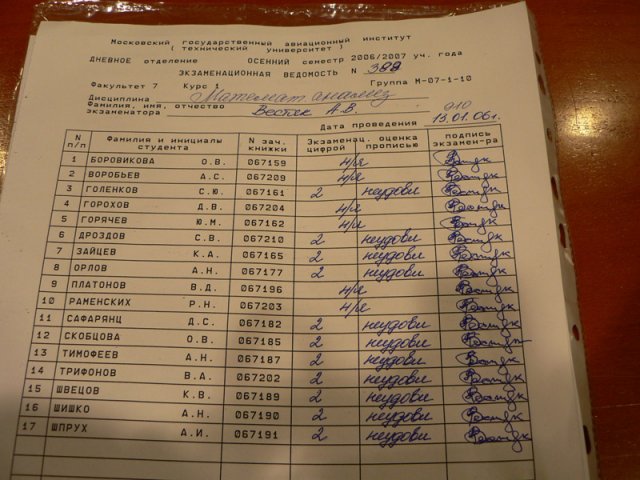 Московский государственный авиационный институт
( технический университет )
ДНЕВНОЕ отделение ОСЕННИЙ семестр 2006/2007 уч. года
ЭКЗАМЕНАЦИОННАЯ ВЕДОМОСТЬ N 388
Факультет 7 Курс 1 Группа М-07-1-10
Дисциплина Математ. анализ
Фамилия, имя, отчество
экзаменатора Вестяк А.В. 910
Дата проведения 13.01.06г.
N п/п Фамилия и инициалы студента N зач. книжки Экзаменац. оценка цифрой прописью подпись экзамен-ра
1 БОРОВИКОВА О.В. 067159 н/я Вестяк
2 ВОРОБЬЕВ А.С. 067209 н/я Вестяк
3 ГОЛЕНКОВ С.Ю. 067161 2 неудовл Вестяк
4 ГОРОХОВ Д.В. 067204 н/я Вестяк
5 ГОРЯЧЕВ Ю.М. 067162 н/я Вестяк
6 ДРОЗДОВ С.В. 067210 2 неудовл Вестяк
7 ЗАЙЦЕВ К.А. 067165 2 неудовл Вестяк
8 ОРЛОВ А.Н. 067177 2 неудовл Вестяк
9 ПЛАТОНОВ В.Д. 067196 н/я Вестяк
10 РАМЕНСКИХ Р.Н. 067203 н/я Вестяк
11 САФАРЯНЦ Д.С. 067182 2 неудовл Вестяк
12 СКОБЦОВА О.В. 067185 2 неудовл Вестяк
13 ТИМОФЕЕВ А.Н. 067187 2 неудовл Вестяк
14 ТРИФОНОВ В.А. 067202 2 неудовл Вестяк
15 ШВЕЦОВ К.В. 067189 2 неудовл Вестяк
16 ШИШКО А.Н. 067190 2 неудовл Вестяк
17 ШПРУХ А.И. 067191 2 неудовл Вестяк